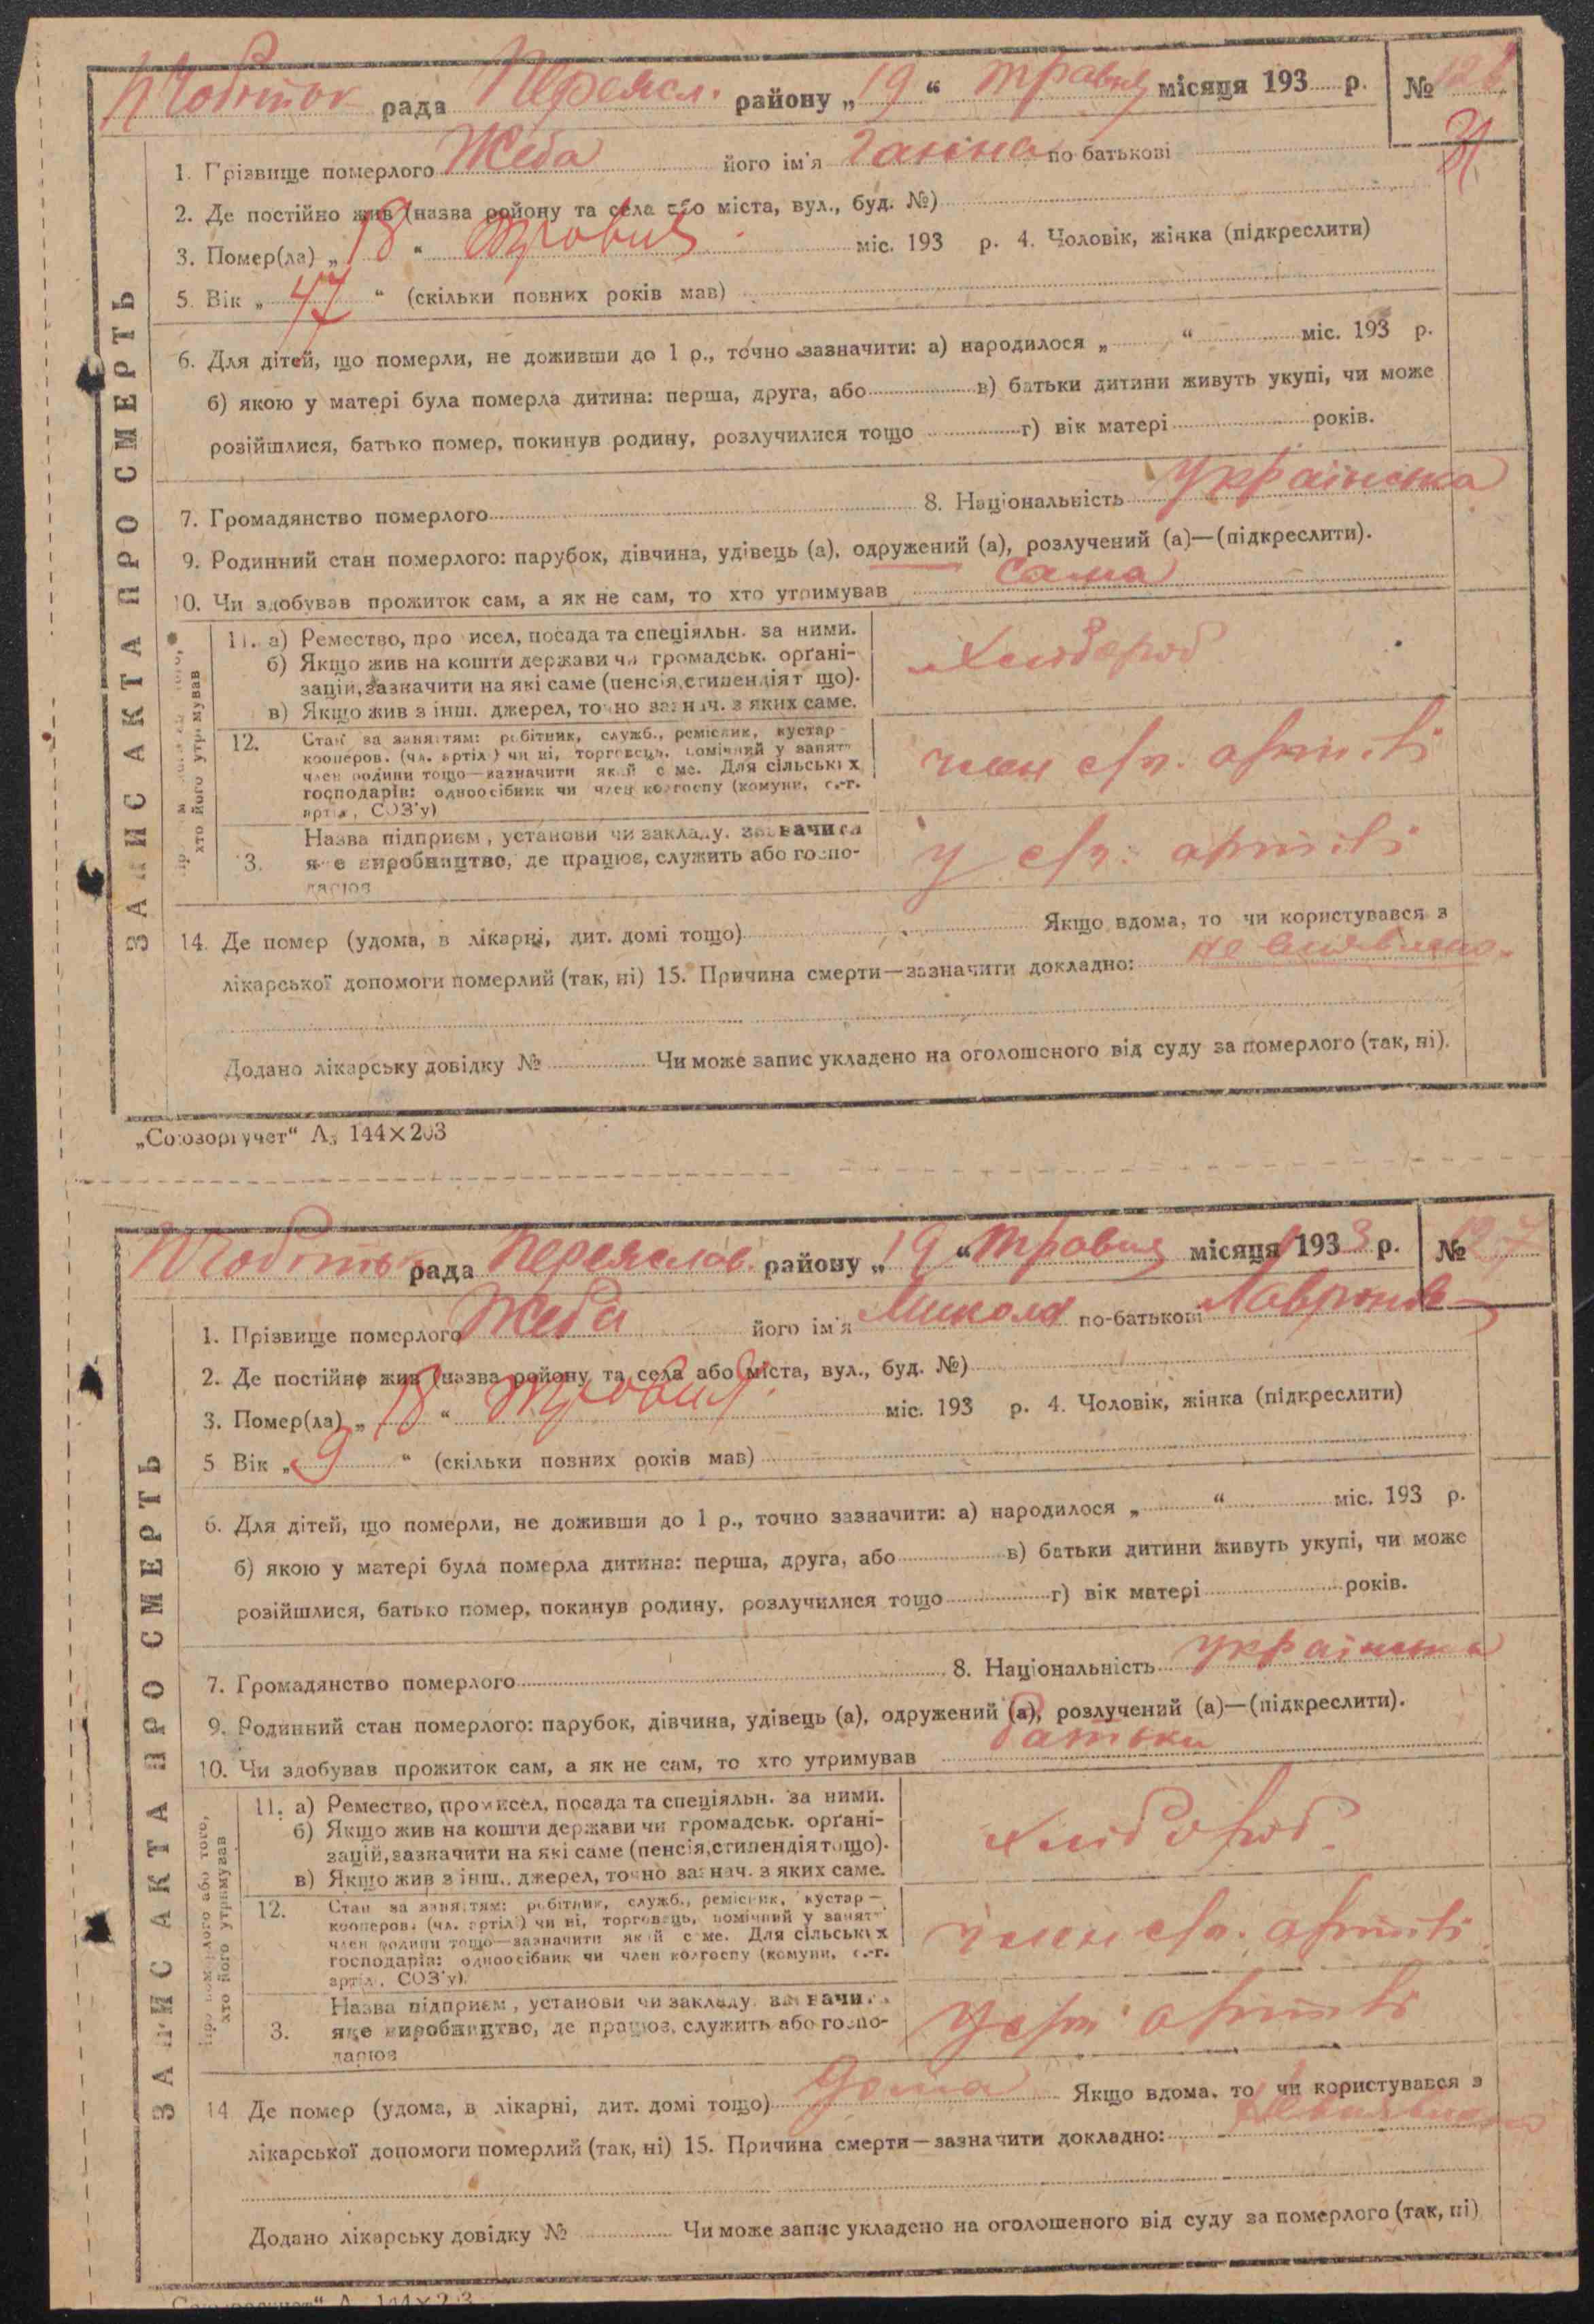 рада Переясл. району „19“ травня місяця 193 р. №
31
1. Прізвище померлого Жеба його ім'я Ганна по батькові
2. Де постійно жив (назва району та села або міста, вул., буд. №)
3. Помер(ла) „18“ травня міс. 193 р. 4. Чоловік, жінка (підкреслити)
5. Вік „47“ (скільки повних років мав)
6. Для дітей, що померли, не доживши до 1 р., точно зазначити: а) народилося „ “ міс. 193 р.
б) якою у матері була померла дитина: перша, друга, або в) батьки дитини живуть укупі, чи може
розійшлися, батько помер, покинув родину, розлучилися тощо г) вік матері років.
7. Громадянство померлого 8. Національність українська
9. Родинний стан померлого: парубок, дівчина, удівець (а), одружений (а), розлучений (а)—(підкреслити).
10. Чи здобував прожиток сам, а як не сам, то хто утримував сама
11. а) Ремество, промисел, посада та спеціяльн. за ними.
б) Якщо жив на кошти держави чи громадськ. орґані-
зацій, зазначити на які саме (пенсія, стипендія тощо).
в) Якщо жив з інш. джерел, точно зазнач. з яких саме.
хлібороб
12. Стан за заняттям: робітник, служб., ремісник, кустар—
кооперов. (чл. артіл.) чи ні, торговець, помічний у занятт
член родини тощо—зазначити який саме. Для сільських
господарів: одноосібник чи член колгоспу (комуни, с.-г.
артіл., СОЗ'у)
член с/г. артілі
13. Назва підприєм., установи чи закладу, зазначити
яке виробництво, де працює, служить або госпо-
дарює
у с/г. артілі
хто його утримував
14. Де помер (удома, в лікарні, дит. домі тощо) Якщо вдома, то чи користувався з
лікарської допомоги померлий (так, ні) 15. Причина смерти—зазначити докладно: не виявлено
Додано лікарську довідку № Чи може запис укладено на оголошеного від суду за померлого (так, ні).
ЗАПИС АКТА ПРО СМЕРТЬ
„Союзоргучет“ А5 144×203
рада Переяслав. району „19“ травня місяця 1933 р. № 127
1. Прізвище померлого Жеба його ім'я Микола по-батькові
2. Де постійно жив (назва району та села або міста, вул., буд. №)
3. Помер(ла) „18“ травня міс. 193 р. 4. Чоловік, жінка (підкреслити)
5 Вік „9“ (скільки повних років мав)
6. Для дітей, що померли, не доживши до 1 р., точно зазначити: а) народилося „ “ міс. 193 р.
б) якою у матері була померла дитина: перша, друга, або в) батьки дитини живуть укупі, чи може
розійшлися, батько помер, покинув родину, розлучилися тощо г) вік матері років.
7. Громадянство померлого 8. Національність українська
9. Родинний стан померлого: парубок, дівчина, удівець (а), одружений (а), розлучений (а)—(підкреслити).
10. Чи здобував прожиток сам, а як не сам, то хто утримував батьки
11. а) Ремество, промисел, посада та спеціяльн. за ними.
б) Якщо жив на кошти держави чи громадськ. орґані-
зацій, зазначити на які саме (пенсія, стипендія тощо).
в) Якщо жив з інш. джерел, точно зазнач. з яких саме.
хлібороб.
12. Стан за заняттям: робітник, служб., ремісник, кустар—
кооперов. (чл. артіл.) чи ні, торговець, помічний у занятт
член родини тощо—зазначити який саме. Для сільських
господарів: одноосібник чи член колгоспу (комуни, с.-г.
артіл., СОЗ'у).
член с/г. артілі
3. Назва підприєм., установи чи закладу, зазначити
яке виробництво, де працює, служить або госпо-
дарює
у с/г артілі
Про померлого або того,
хто його утримував
14 Де помер (удома, в лікарні, дит. домі тощо) дома Якщо вдома, то чи користувався з
лікарської допомоги померлий (так, ні) 15. Причина смерти—зазначити докладно: не виявлено
Додано лікарську довідку № Чи може запис укладено на оголошеного від суду за померлого (так, ні)
ЗАПИС АКТА ПРО СМЕРТЬ
„Союзоргучет“ А5 144×203